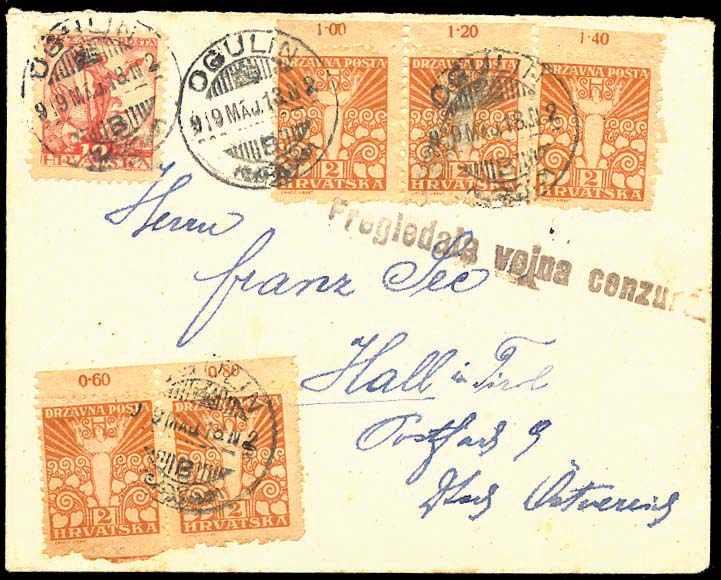 1·00 1·20 1·40
OGULIN
919 MÁJ. 18. N 2
B
HRVATSKA
OGULIN
919 MÁJ. 18. N 2
B
DRZAVNA POSTA
2
HRVATSKA
DRZAVNA POSTA
2
HRVATSKA
DRZAVNA POSTA
2
HRVATSKA
Pregledala vojna cenzura
Herrn
Franz See
Hall in Tirol
Postfach 9
Dtsch Österreich
0·60 0·80
DRZAVNA POSTA
2
HRVATSKA
DRZAVNA POSTA
2
HRVATSKA